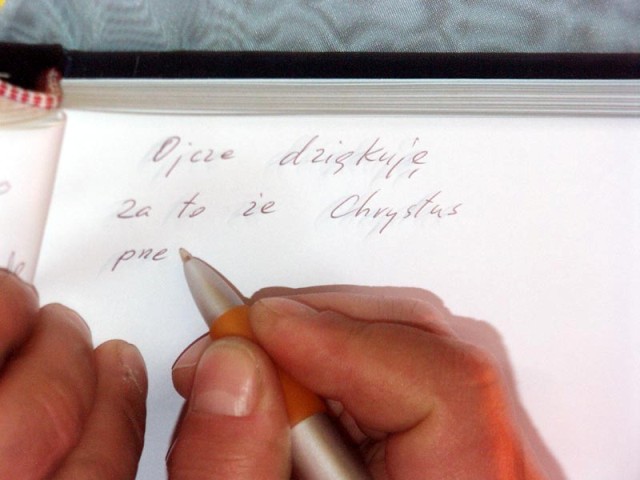 Ojcze dziękuję
za to że Chrystus
prze